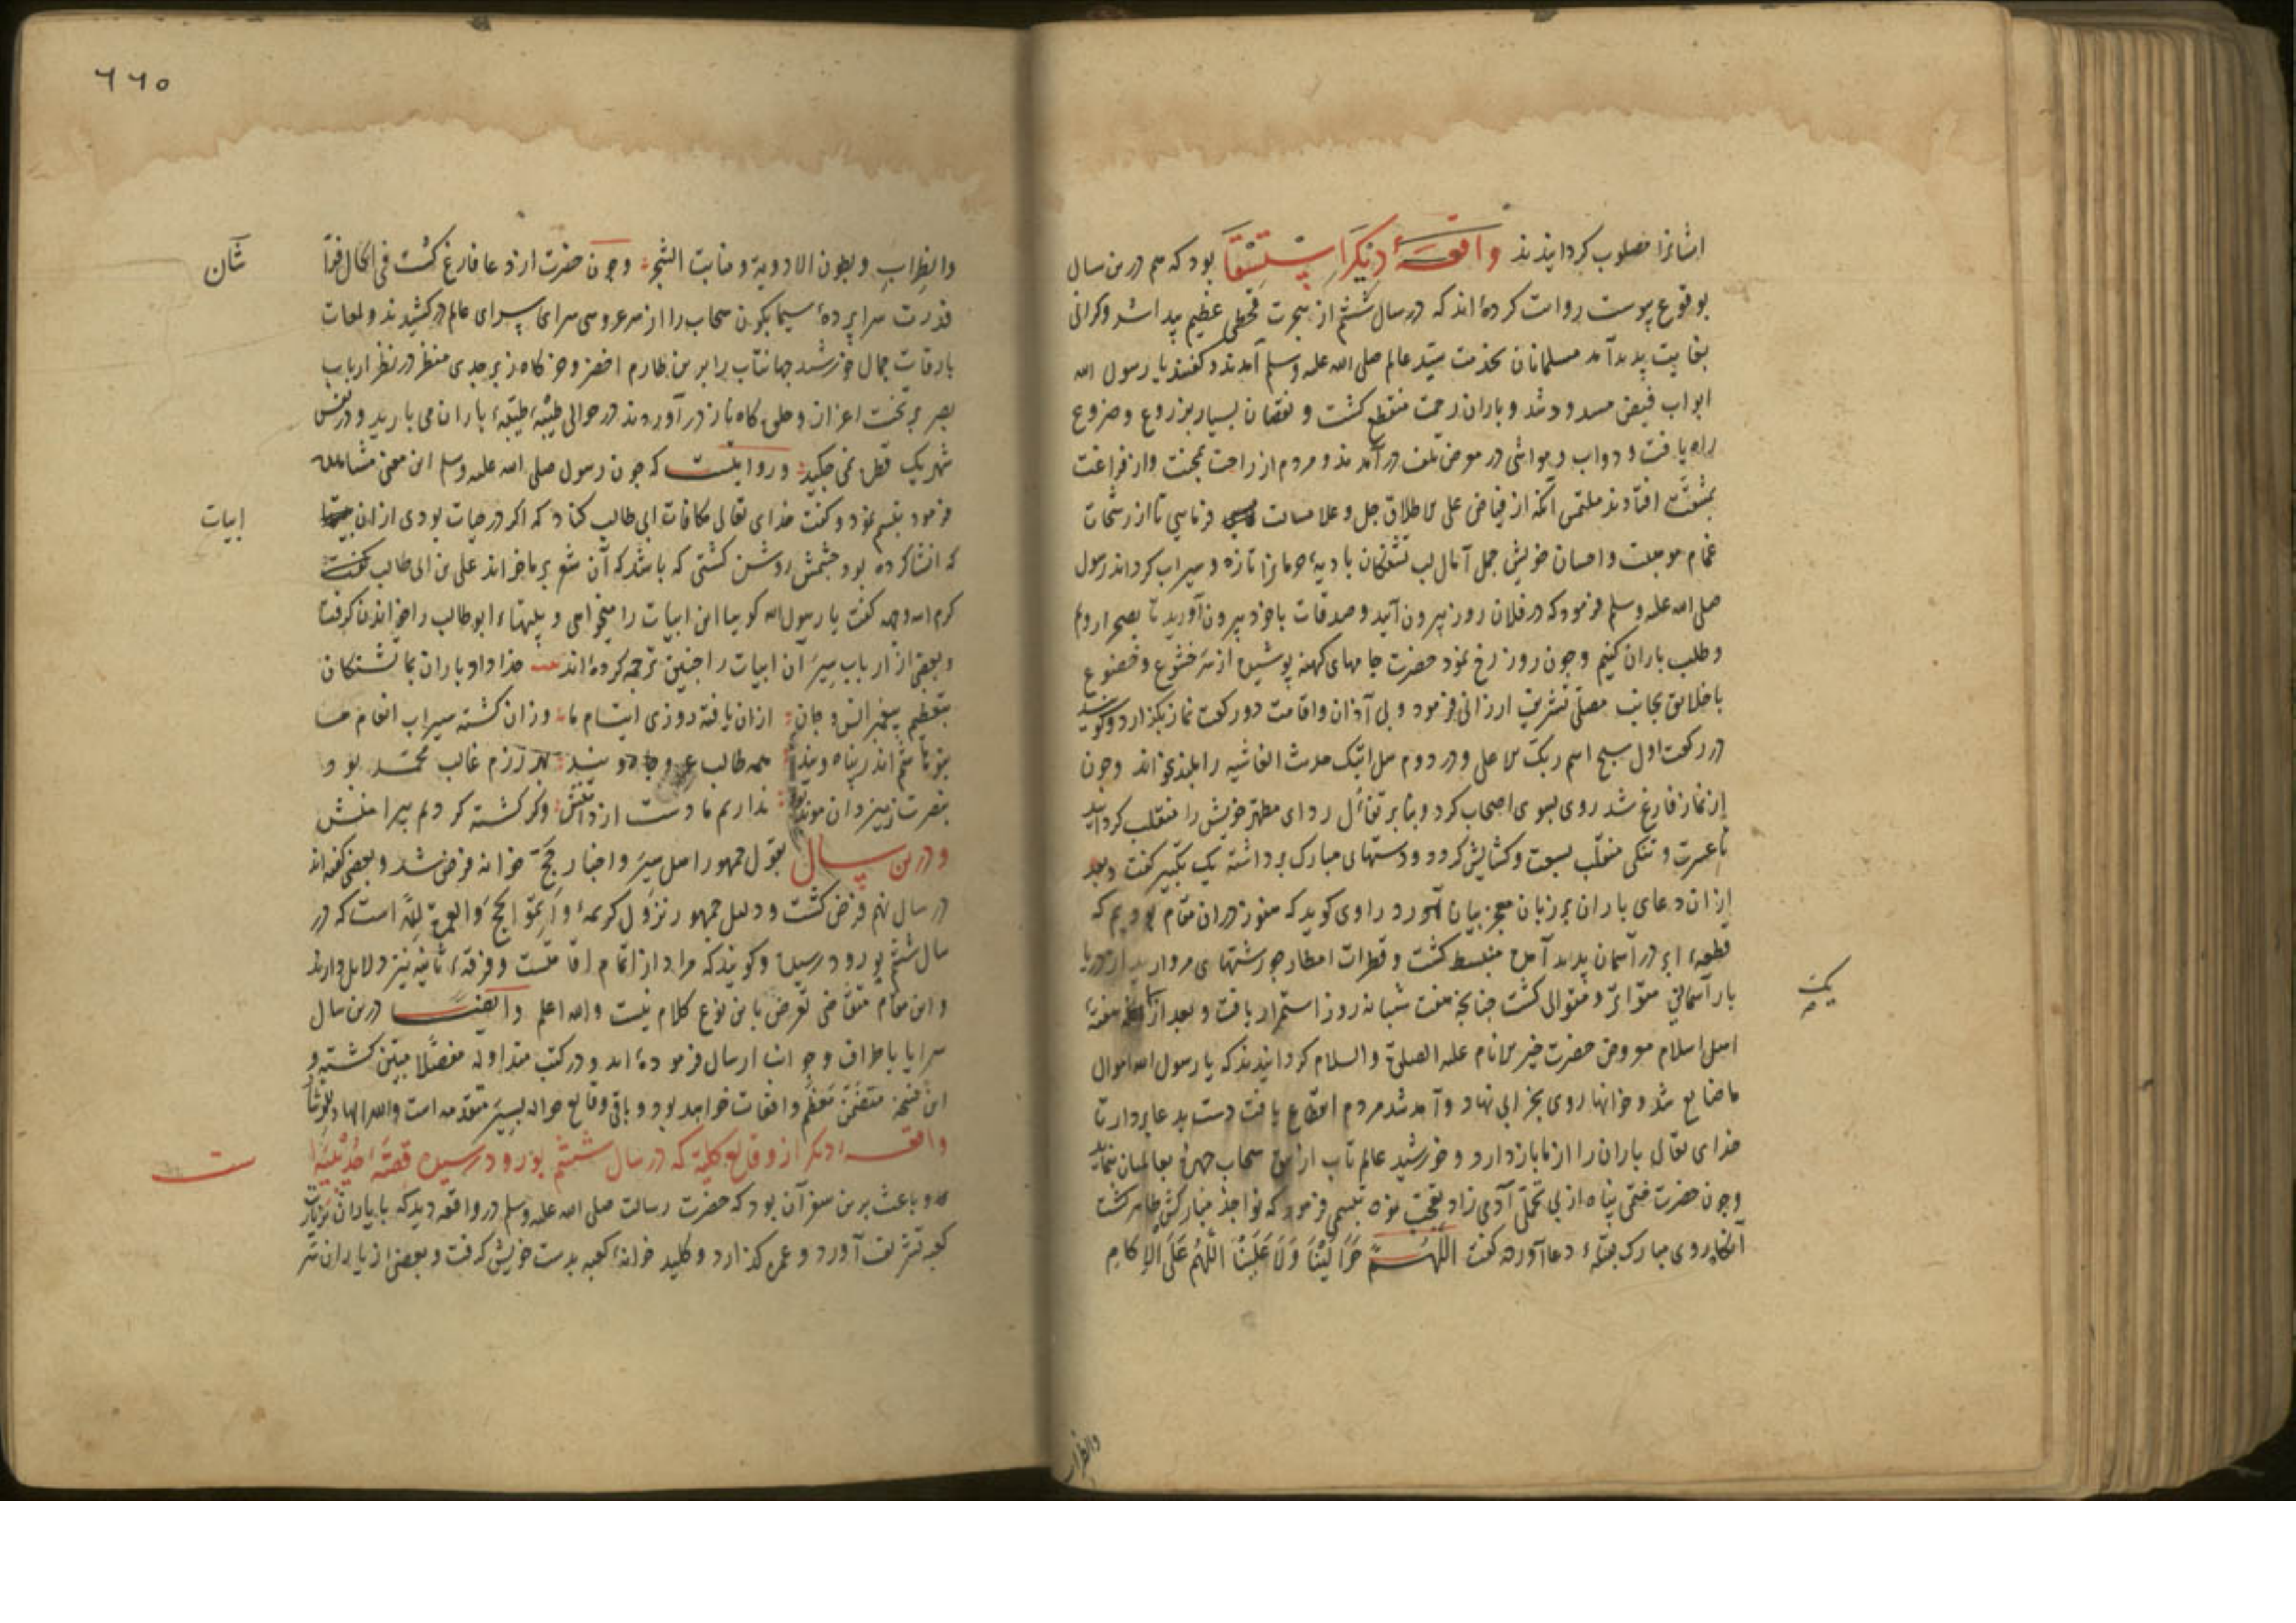 ایشانرا مصلوب کردانیدند واقعهٔ دیکر استسقا بود که هم درین سال
بوقوع پیوست روایت کرده‌اند که در سال ششم از هجرت قحطی عظیم پیدا شد و کرانی
بغایت پدید آمد مسلمانان بخدمت سید عالم صلی الله علیه وسلم آمدند و کفتند یا رسول الله
ابواب فیض مسدود شد و باران رحمت منقطع کشت و نقصان بسیار بزروع و ضروع
راه یافت و دواب و مواشی در معرض تلف درآمدند و مردم از راحت بمحنت و از فراغت
بمشقت افتادند ملتمس آنکه از فیاض علی الاطلاق جل وعلا مسالت فرمایی تا از رشحات
غمام موهبت و احسان خویش جمل آمال لب تشنکان بادیهٔ حرمانرا تازه و سیراب کرداند رسول
صلی الله علیه وسلم فرمود که در فلان روز بیرون آیید و صدقات باخود بیرون آورید تا بصحرا رویم
و طلب باران کنیم و چون روز رخ نمود حضرت جامهای کهنه پوشیده از سر خشوع و خضوع
با خلایق بجانب مصلی تشریف ارزانی فرمود و بی آذان و اقامت دو رکعت نماز بکذارد و کویند
در رکعت اول سبح اسم ربک الاعلی و در دوم هل اتیک حدیث الغاشیه را بلند بخواند وچون
از نماز فارغ شد روی بسوی اصحاب کرد و بنابر تفأل ردای مطهر خویش را منقلب کردانید
تا عسرت و تنکی منقلب بسعت و کشایش کردد و دستهای مبارک برداشته یک تکبیر کفت و بعد
از ان دعای باران بر زبان معجز بیان آورد راوی کوید که هنوز دران مقام بودیم که
قطعهٔ ابر در آسمان پدید آمده منبسط کشت و قطرات امطار چو رشتهای مروارید از دریا
بار آسمانی متواتر و متوالی کشت چنانچه هفت شبانه روز استمرار یافت و بعد از هفتهٔ
یک
اهل اسلام معروض حضرت خیر الانام علیه الصلوة والسلام کردانیدند که یا رسول الله اموال
ما ضایع شد و خوانها روی بخرابی نهاد و آمد شد مردم انقطاع یافت دست بدعا بردار تا
خدای تعالی باران را از ما باز دارد و خورشید عالم تاب از سحاب چهره بعالمیان نماید
وچون حضرت ختمی پناه از بی تحملی آدمی زاد تعجب نموده تبسمی فرمود که نواجذ مبارکش ظاهر کشت
آنکاه روی مبارک بقبلهٔ دعا آورده کفت اللهم حوالینا ولا علینا اللهم علی الاکام
والظراب
٦٦٥
والظراب وبطون الاودیة ومنابت الشجر وچون حضرت از دعا فارغ کشت فی الحال فرا
شان
قدرت سراپردهٔ سیمابکون سحاب را از سر عروسی سرای سرای عالم درکشیدند و لمعات
بارقات جمال خورشید جهانتاب را برین طارم اخضر و خرکاه زبرجدی منظر در نظر ارباب
بصر بر تخت اعزاز و جلوه کاه ناز درآوردند در حوالی طیبهٔ طیبه باران می بارید و در نفس
شهر یک قطره نمی چکید و روایتست که چون رسول صلی الله علیه وسلم این معنی مشاهده
فرمود تبسم نمود و کفت خدای تعالی مکافات ابی طالب کناد که اکر در حیات بودی از ان
ابیات
که انشا کرده بود چشمش روشن کشتی که باشد که آن شعر بر ما خواند علی بن ابی طالب
کرم الله وجهه کفت یا رسول الله کوییا این ابیات را میخواهی و ابوطالب را خواندن کرفت
و بعضی از ارباب سیر آن ابیات را چنین ترجمه کرده‌اند خدا داد باران بما تشنکان
بتعظیم پیغمبر انس و جان از ان یافته روزی ایتام ما وزان کشته سیراب انعام ما
بنو هاشم اندر پناه ویند همه طالب عز و جاه ویند بهر رزم غالب محمد بود
بنصرت ز یزدان موید بود نداریم ما دست از دامنش وکر کشته کردیم پیرامنش
ودرین سال بقول جمهور اهل سیر و اخبار حج خوانه فرض شد و بعضی کفته‌اند
در سال نهم فرض کشت و دلیل جمهور نزول کریمهٔ واتموا الحج والعمرة لله است که در
سال ششم بورود رسیده و کویند که مراد از اتمام اقامتست و فرقهٔ ثانیه نیز دلایل دارند
واین مقام متقاضی تعرض باین نوع کلام نیست والله اعلم وایضا درین سال
سرایا باطراف و جوانب ارسال فرموده‌اند و در کتب متداوله مفصلا مبین کشته و
این نسخه متضمن معظم واقعات خواهد بود و باقی وقایع حواله بسیر متقدمه است والله الهادی
واقعهٔ دیکر از وقایع کلیه که در سال ششم بورود رسیده قصهٔ حدیبیه
ست
و باعث برین سفر آن بود که حضرت رسالت صلی الله علیه وسلم در واقعه دید که با یاران بزیارت
کعبه تشریف آورد و عمره کذارد و کلید خوانهٔ کعبه بدست خویش کرفت و بعضی از یاران سر